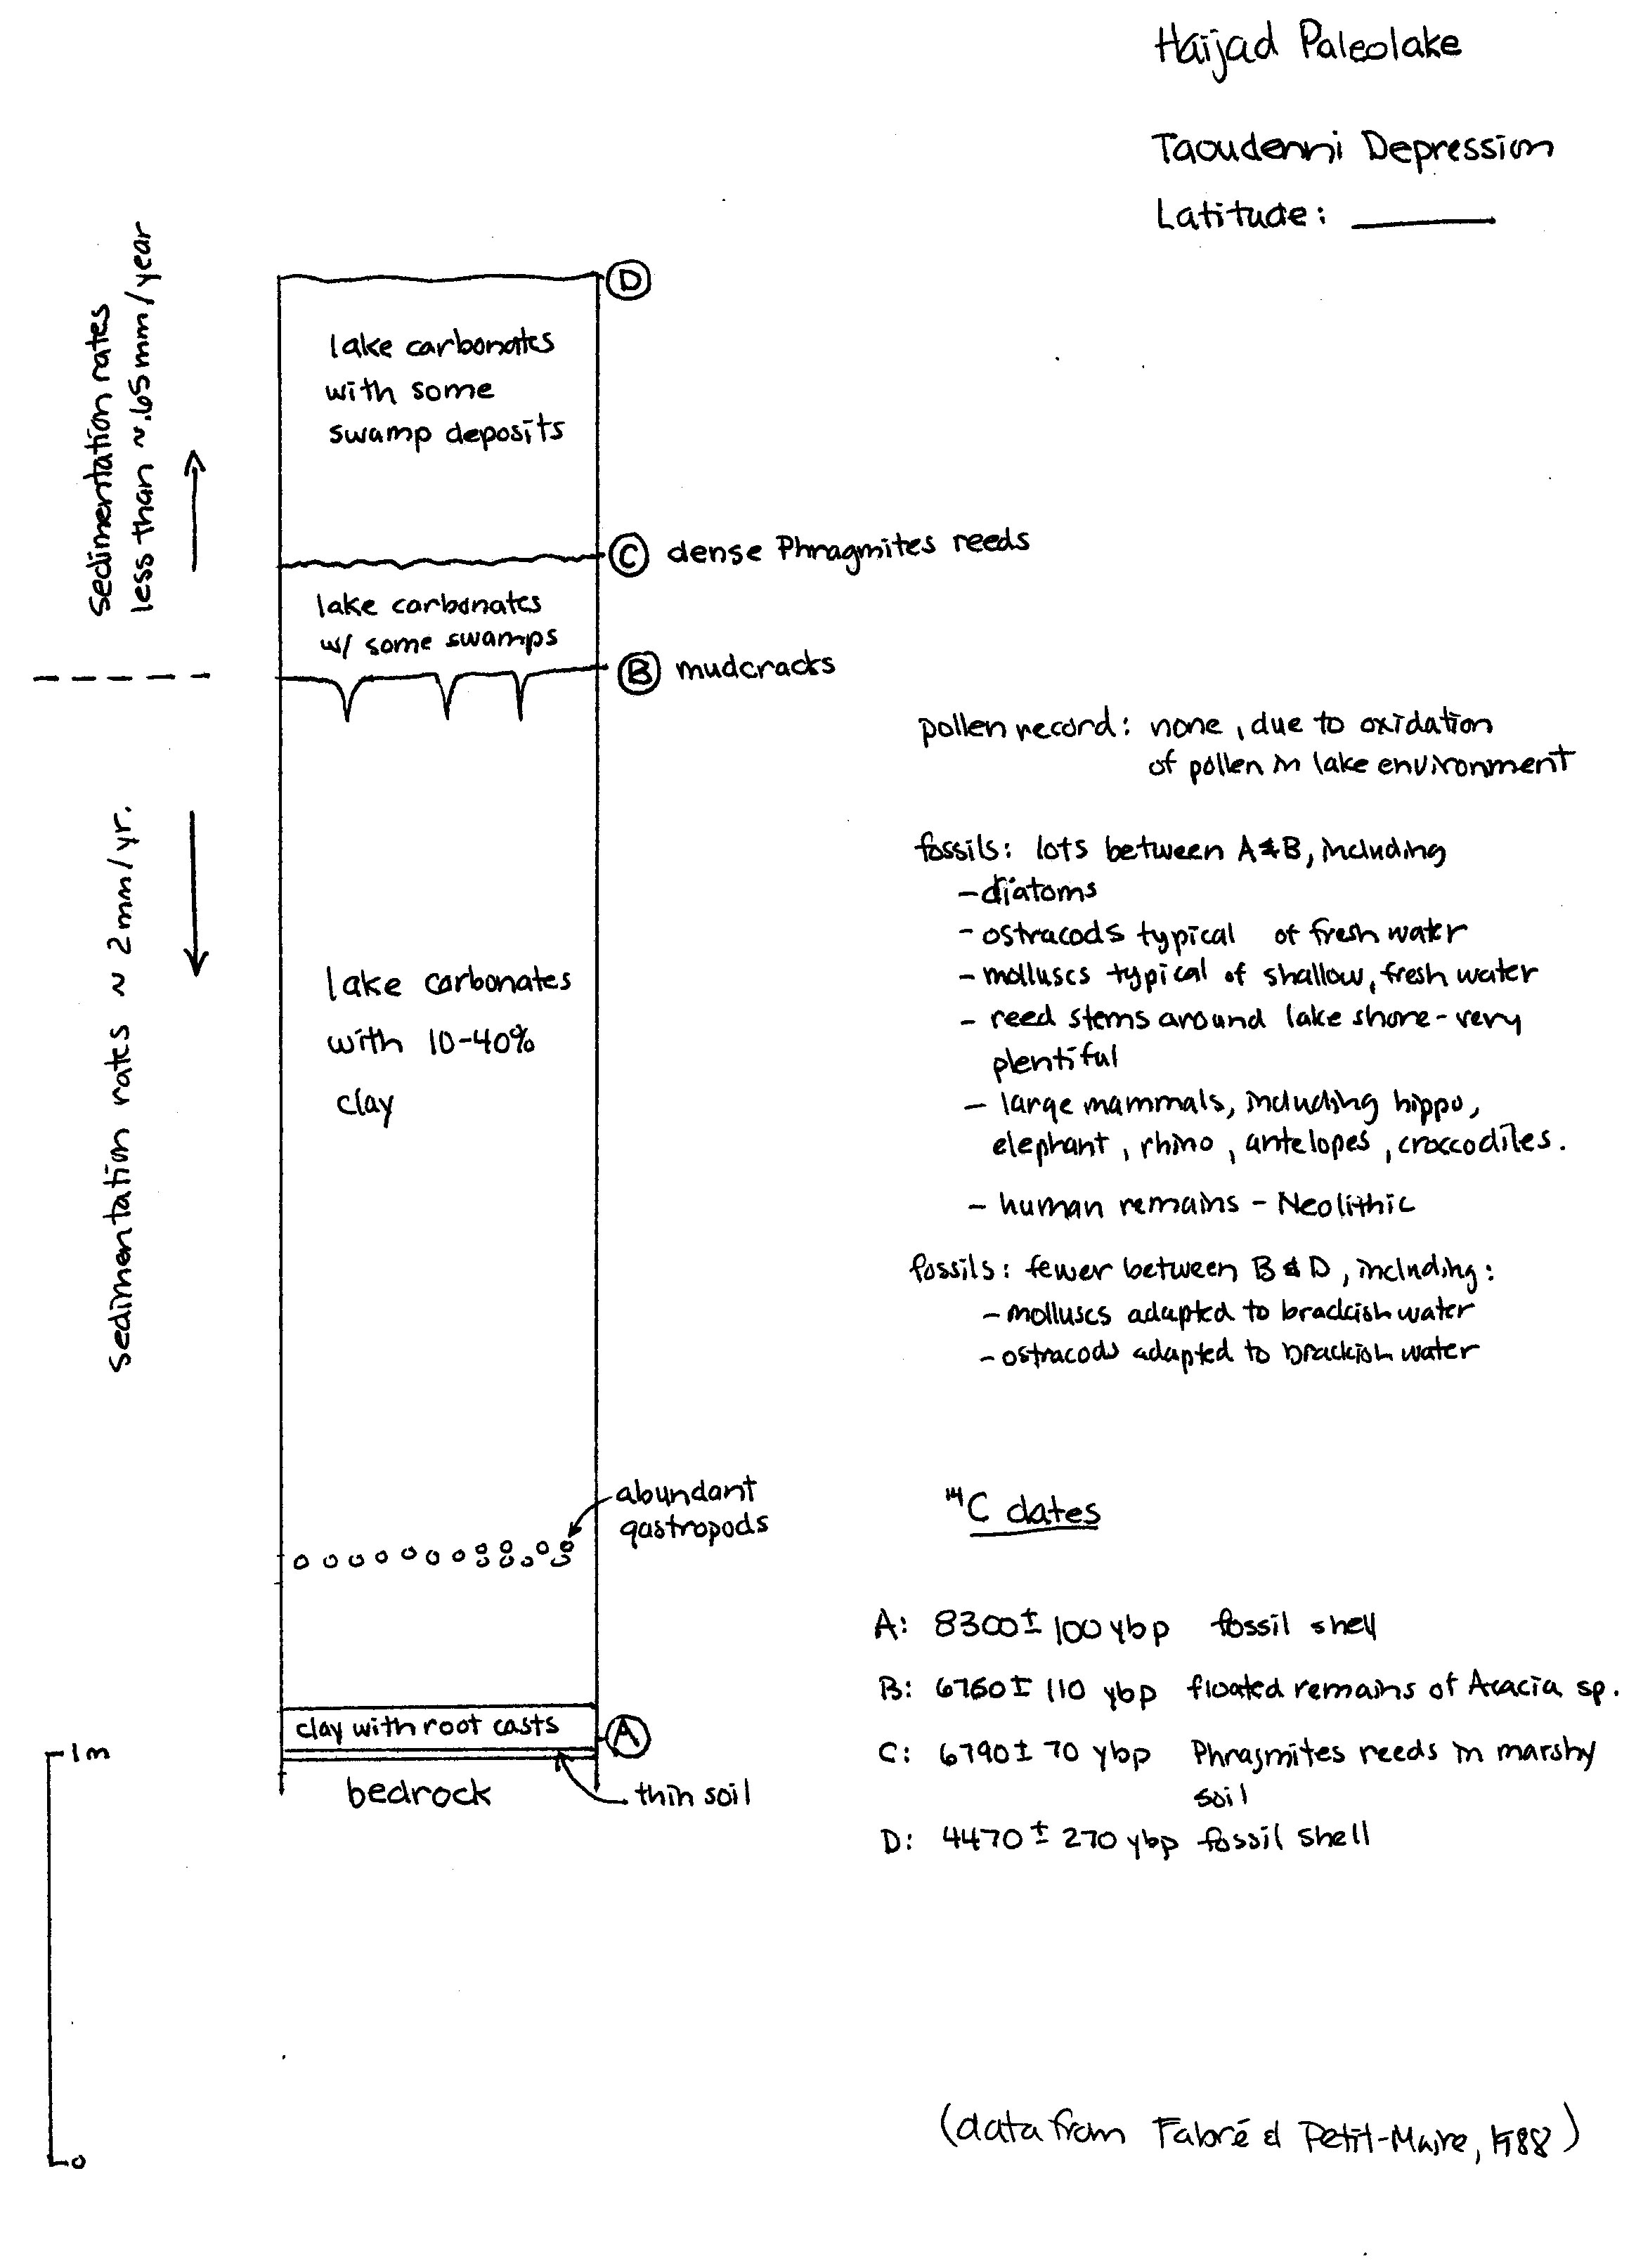 Haijad Paleolake
Taoudenni Depression
Latitude: ______
sedimentation rates
less than ~.65mm/year
D
lake carbonates
with some
swamp deposits
C dense Phragmites reeds
lake carbonates
w/ some swamps
B mudcracks
sedimentation rates ~ 2mm/yr.
lake carbonates
with 10-40%
clay
abundant
gastropods
clay with root casts
A
thin soil
bedrock
1m
0
pollen record: none, due to oxidation
of pollen in lake environment
fossils: lots between A & B, including
- diatoms
- ostracods typical of fresh water
- molluscs typical of shallow, fresh water
- reed stems around lake shore - very
plentiful
- large mammals, including hippo,
elephant, rhino, antelopes, croccodiles.
- human remains - Neolithic
fossils: fewer between B & D, including:
- molluscs adapted to brackish water
- ostracods adapted to brackish water
14C dates
A: 8300 ± 100 ybp fossil shell
B: 6760 ± 110 ybp floated remains of Acacia sp.
C: 6790 ± 70 ybp Phragmites reeds in marshy
soil
D: 4470 ± 270 ybp fossil shell
(data from Fabré & Petit-Maire, 1988)